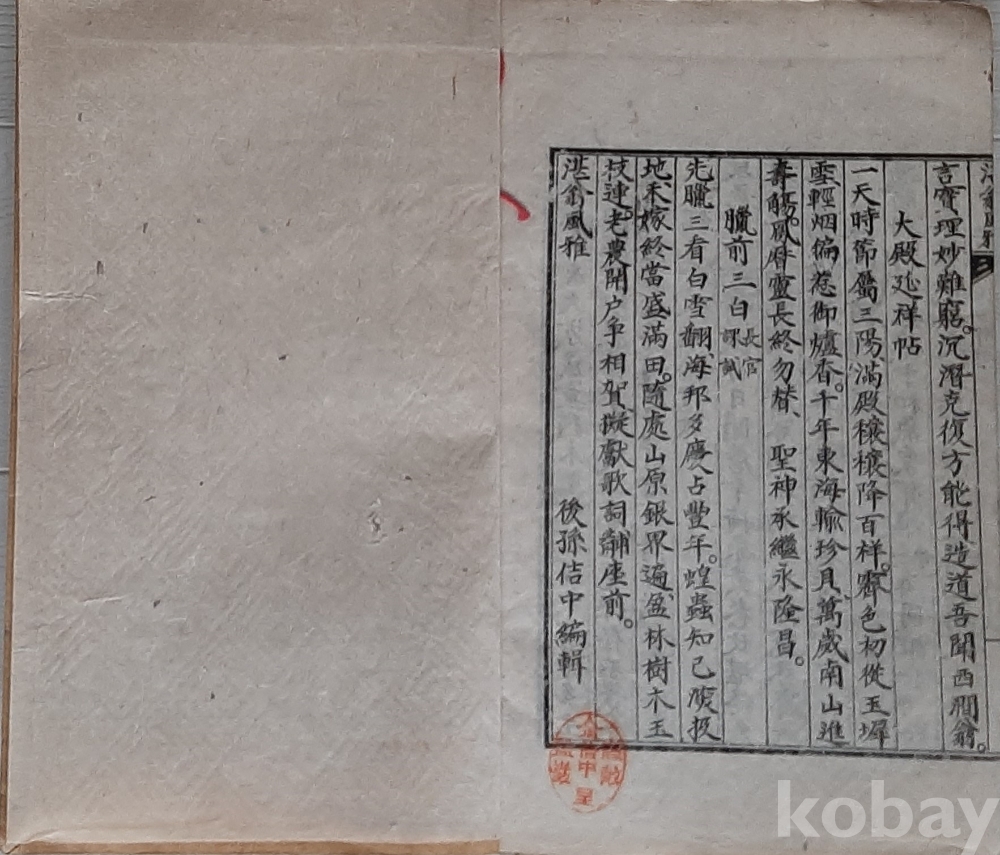 言實理妙難窮。沉潛克復方能得造道吾聞西澗翁。
大殿延祥帖
一天時節屬三陽、滿殿穰穰降百祥。霽色初從玉墀
雲輕烟偏惹御爐香。千年東海輸珍貝、萬歲南山進
壽觴。鳳曆靈長終勿替、聖神承繼永隆昌。
臘前三白 長官課試
先臘三看白雪翻、海邦多慶占豐年。蝗蟲知已
地、禾稼終當盛滿田。隨處山原銀界遍、盆林樹木玉
枝連。老農開户爭相賀、擬獻歌詞黼座前。
翁風雅
後孫佶中編輯
中呈
kobay